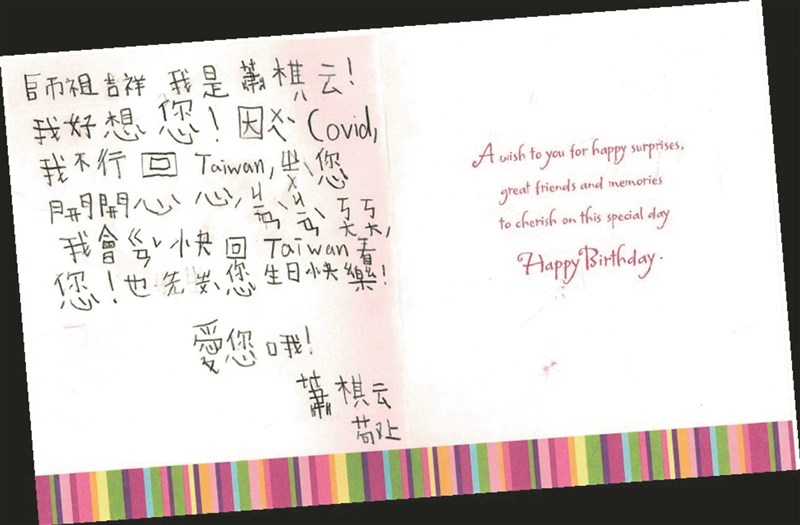 師祖吉祥 我是蕭棋云!
我好想您! 因ㄨㄟˋ Covid,
我不行回 Taiwan, ㄓㄨˋ您
開開心心, ㄐㄢˋㄐㄢˋㄎㄤㄎㄤ,
我會ㄍㄢˇ快回 Taiwan 看
您!也先ㄓㄨˋ您生日快樂!
愛您哦!
蕭棋云
敬上
A wish to you for happy surprises,
great friends and memories
to cherish on this special day
Happy Birthday.